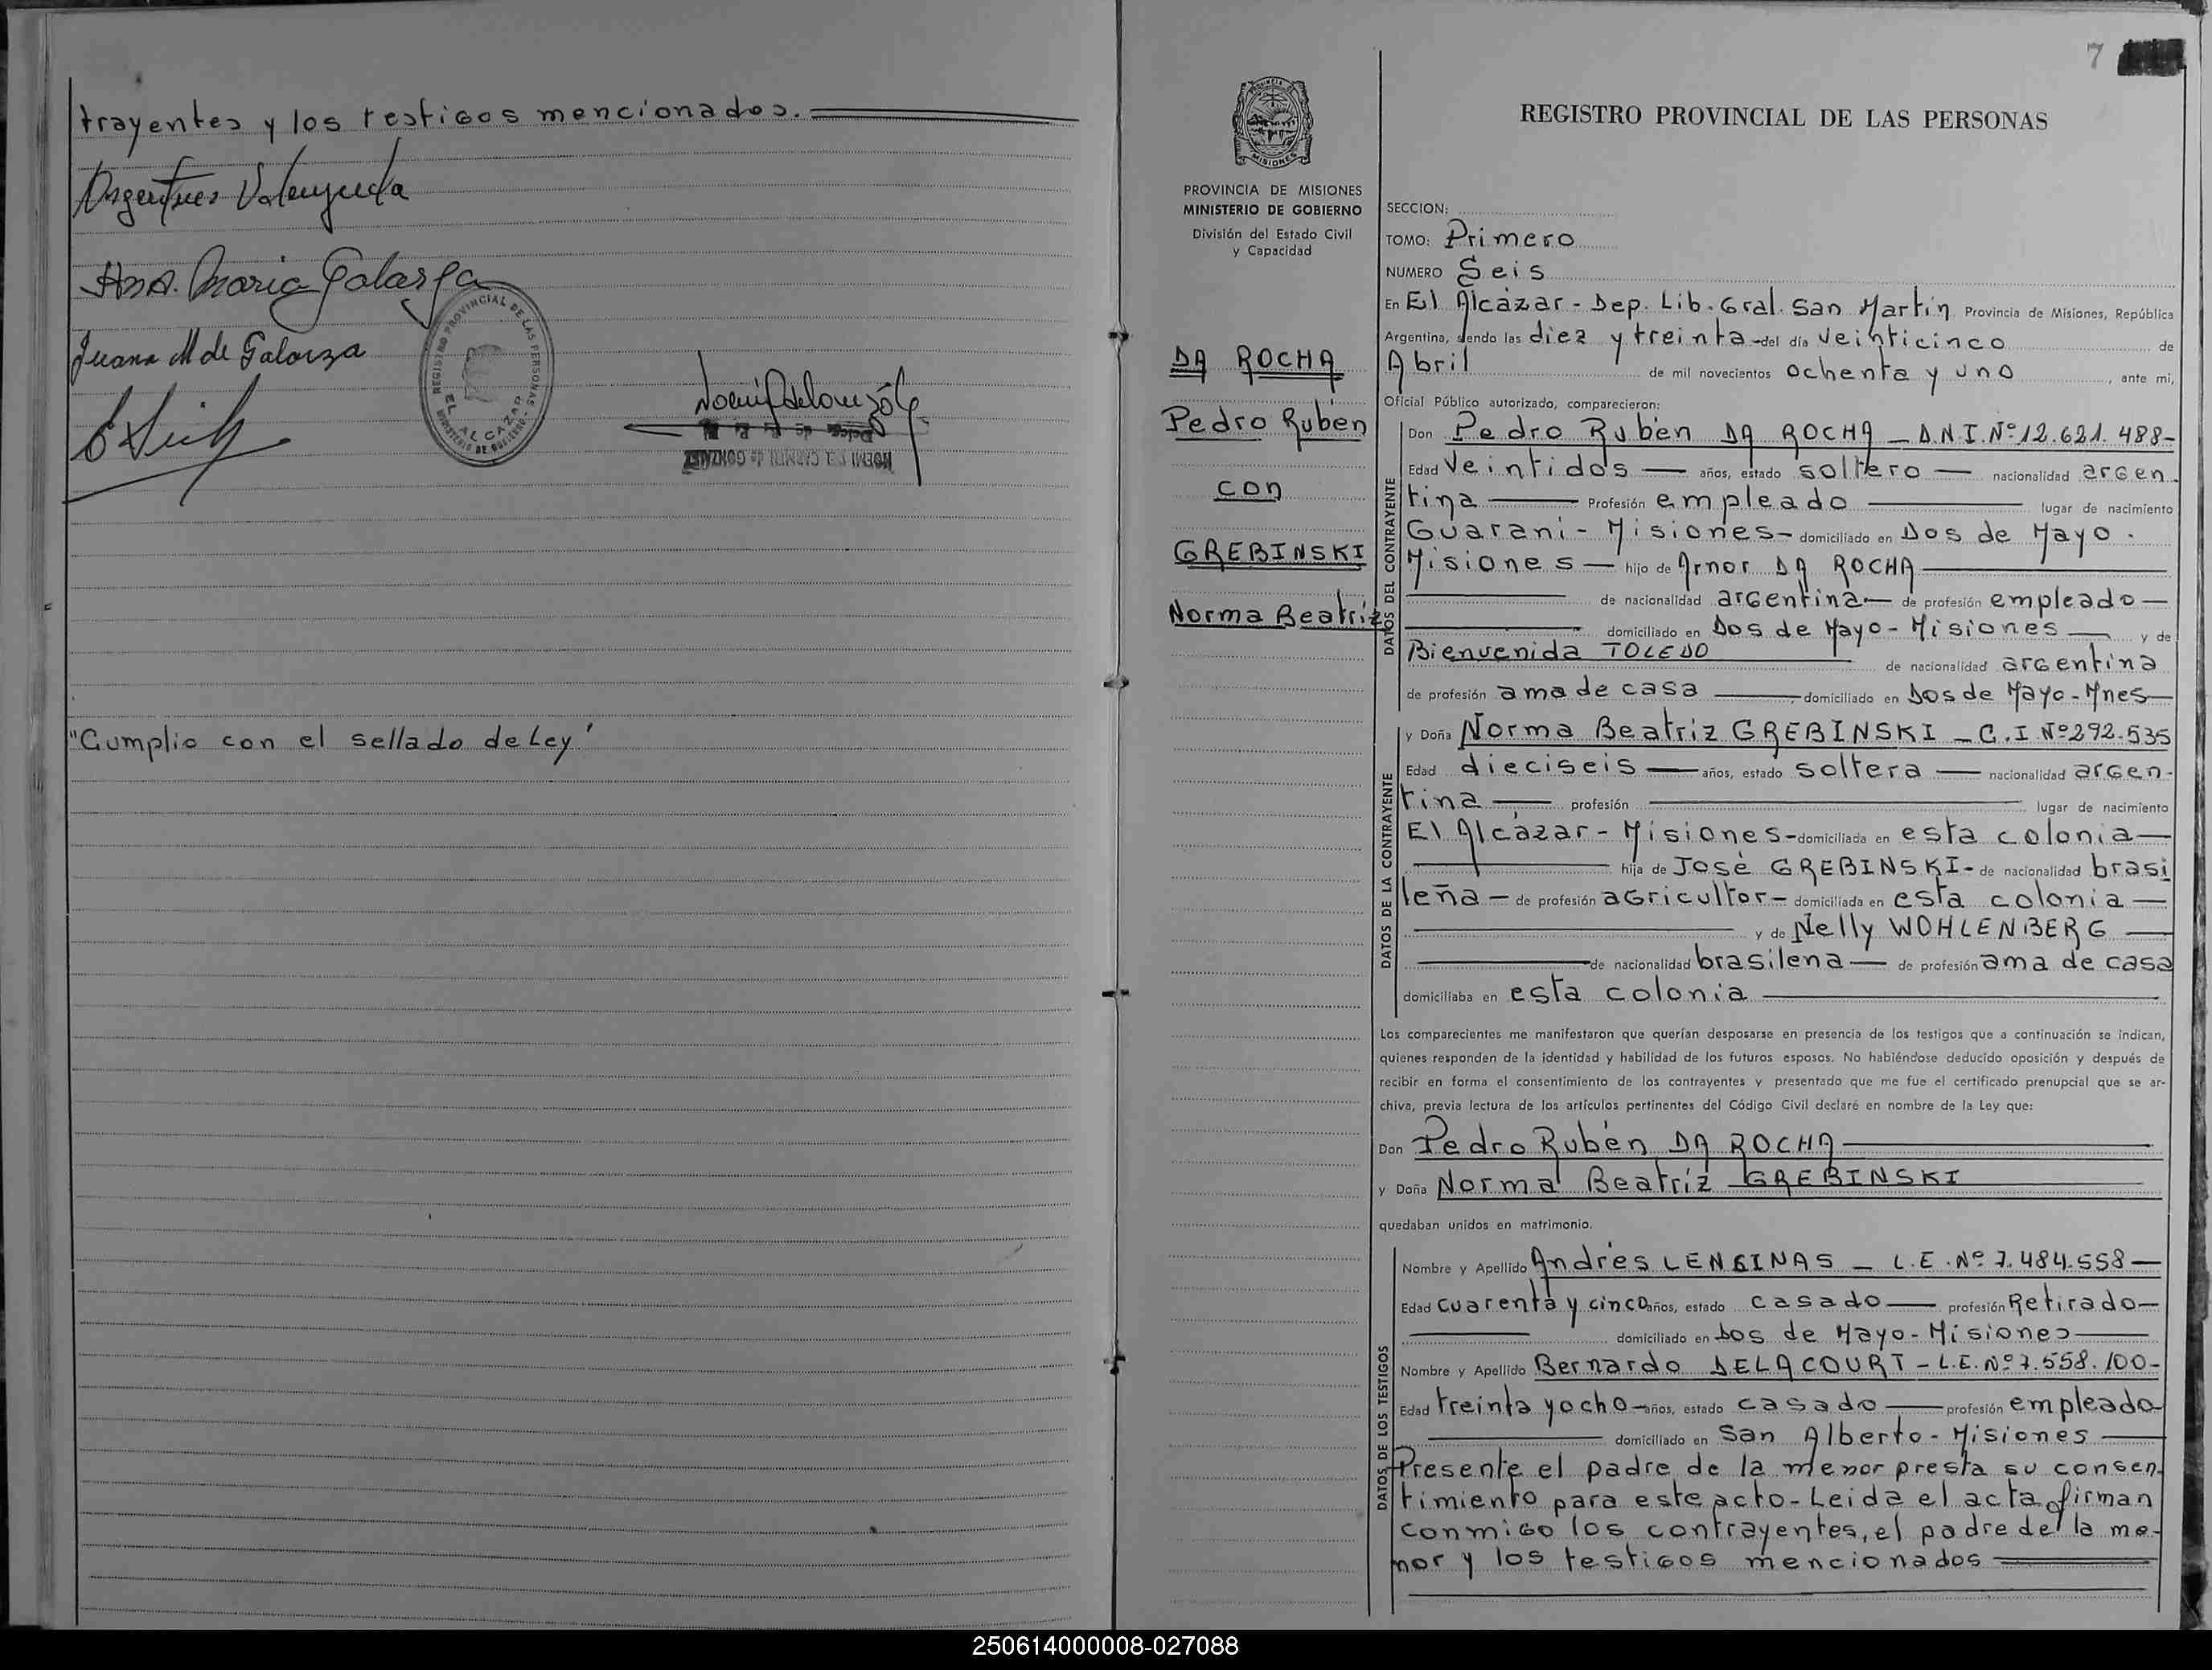 trayentes y los testigos mencionados.
Ana María Galarza
Juana M de Galarza
REGISTRO PROVINCIAL DE LAS PERSONAS
EL ALCAZAR
MINISTERIO DE GOBIERNO
NOEMI DEL CARMEN de GONZALEZ
"Cumplio con el sellado de Ley"
7
PROVINCIA DE MISIONES
MINISTERIO DE GOBIERNO
División del Estado Civil
y Capacidad
DA ROCHA
Pedro Rubén
con
GREBINSKI
Norma Beatriz
REGISTRO PROVINCIAL DE LAS PERSONAS
SECCION:
TOMO: Primero
NUMERO Seis
En El Alcázar - Dep. Lib. Gral. San Martín Provincia de Misiones, República
Argentina, siendo las diez y treinta - del día veinticinco de
Abril de mil novecientos ochenta y uno, ante mi,
Oficial Público autorizado, comparecieron:
DATOS DEL CONTRAYENTE
Don Pedro Rubén DA ROCHA - D.N.I. Nº 12.621.488-
Edad Veintidos — años, estado soltero — nacionalidad argen
tina — Profesión empleado — lugar de nacimiento
Guaraní - Misiones - domiciliado en Dos de Mayo.
Misiones — hijo de Arnor DA ROCHA —
de nacionalidad argentina — de profesión empleado —
domiciliado en Dos de Mayo - Misiones — y de
Bienvenida TOLEDO de nacionalidad argentina
de profesión ama de casa — domiciliado en Dos de Mayo - Mnes —
DATOS DE LA CONTRAYENTE
y Doña Norma Beatriz GREBINSKI - C.I Nº 292.535
Edad dieciseis — años, estado soltera — nacionalidad argen-
tina — profesión — lugar de nacimiento
El Alcázar - Misiones - domiciliada en esta colonia —
hija de José GREBINSKI - de nacionalidad brasi
leña - de profesión agricultor - domiciliada en esta colonia —
y de Nelly WOHLENBERG —
de nacionalidad brasilena — de profesión ama de casa
domiciliaba en esta colonia —
Los comparecientes me manifestaron que querían desposarse en presencia de los testigos que a continuación se indican,
quienes responden de la identidad y habilidad de los futuros esposos. No habiéndose deducido oposición y después de
recibir en forma el consentimiento de los contrayentes y presentado que me fue el certificado prenupcial que se ar-
chiva, previa lectura de los artículos pertinentes del Código Civil declaré en nombre de la Ley que:
Don Pedro Rubén DA ROCHA —
y Doña Norma Beatriz GREBINSKI
quedaban unidos en matrimonio.
DATOS DE LOS TESTIGOS
Nombre y Apellido Andrés LENSINAS - L.E. Nº 7.484.558 —
Edad cuarenta y cinco años, estado casado — profesión Retirado —
domiciliado en Dos de Mayo - Misiones —
Nombre y Apellido Bernardo DELACOURT - L.E. Nº 7.558.100 -
Edad treinta y ocho - años, estado casado — profesión empleado
domiciliado en San Alberto - Misiones —
Presente el padre de la menor presta su consen
timiento para este acto - Leida el acta firman
conmigo los contrayentes, el padre de la me-
nor y los testigos mencionados —
250614000008-027088